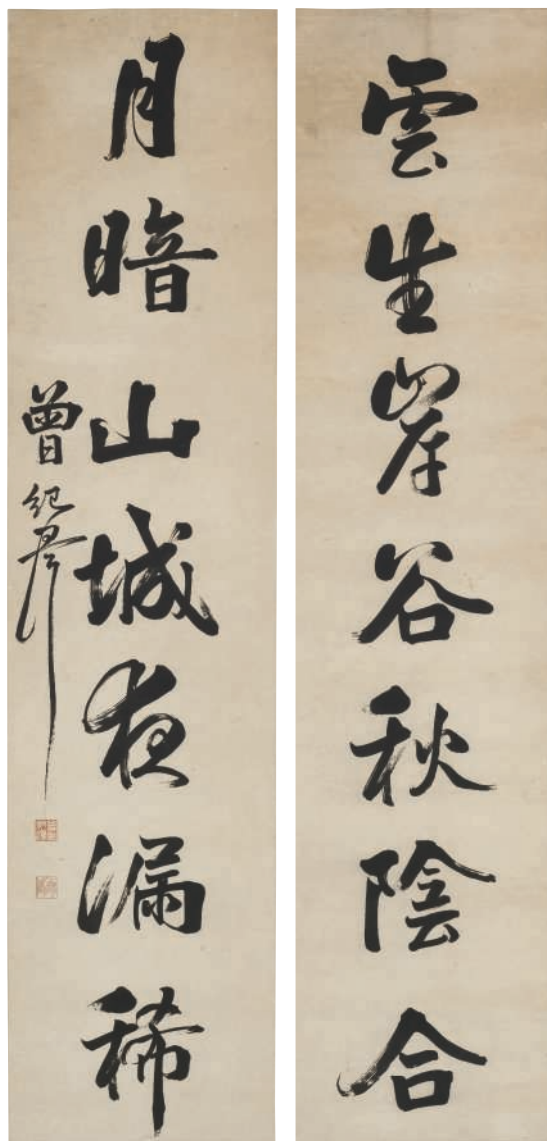 雲生岸谷秋陰合
月暗山城夜漏稀
曾紀澤